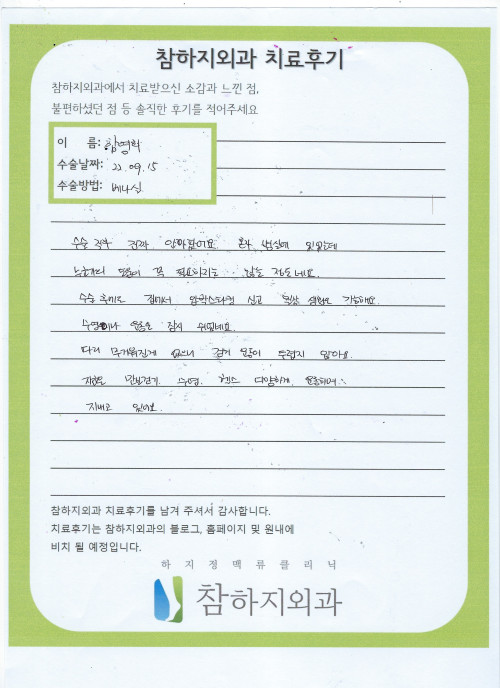 참하지외과 치료후기
참하지외과에서 치료받으신 소감과 느낀 점,
불편하셨던 점 등 솔직한 후기를 적어주세요
이 름:
수술날짜: 22.09.15
수술방법: 베나실
수술 직후 걷기 혼자 병실에
보호자의 도움이 꼭 필요하지는 않은 정도네요
수술 후에도 집에서 압박스타킹 신고 일상 생활도 가능해요.
수영이나 운동은 잠시 쉬었네요.
다리 무거워진게 없으니 걷기 운동이 두렵지 않아요.
지금도 만보걷기. 수영. 헬스 다양하게 운동하며
지내고 있어요.
참하지외과 치료후기를 남겨 주셔서 감사합니다.
치료후기는 참하지외과의 블로그, 홈페이지 및 원내에
비치 될 예정입니다.
하지정맥류클리닉
참하지외과